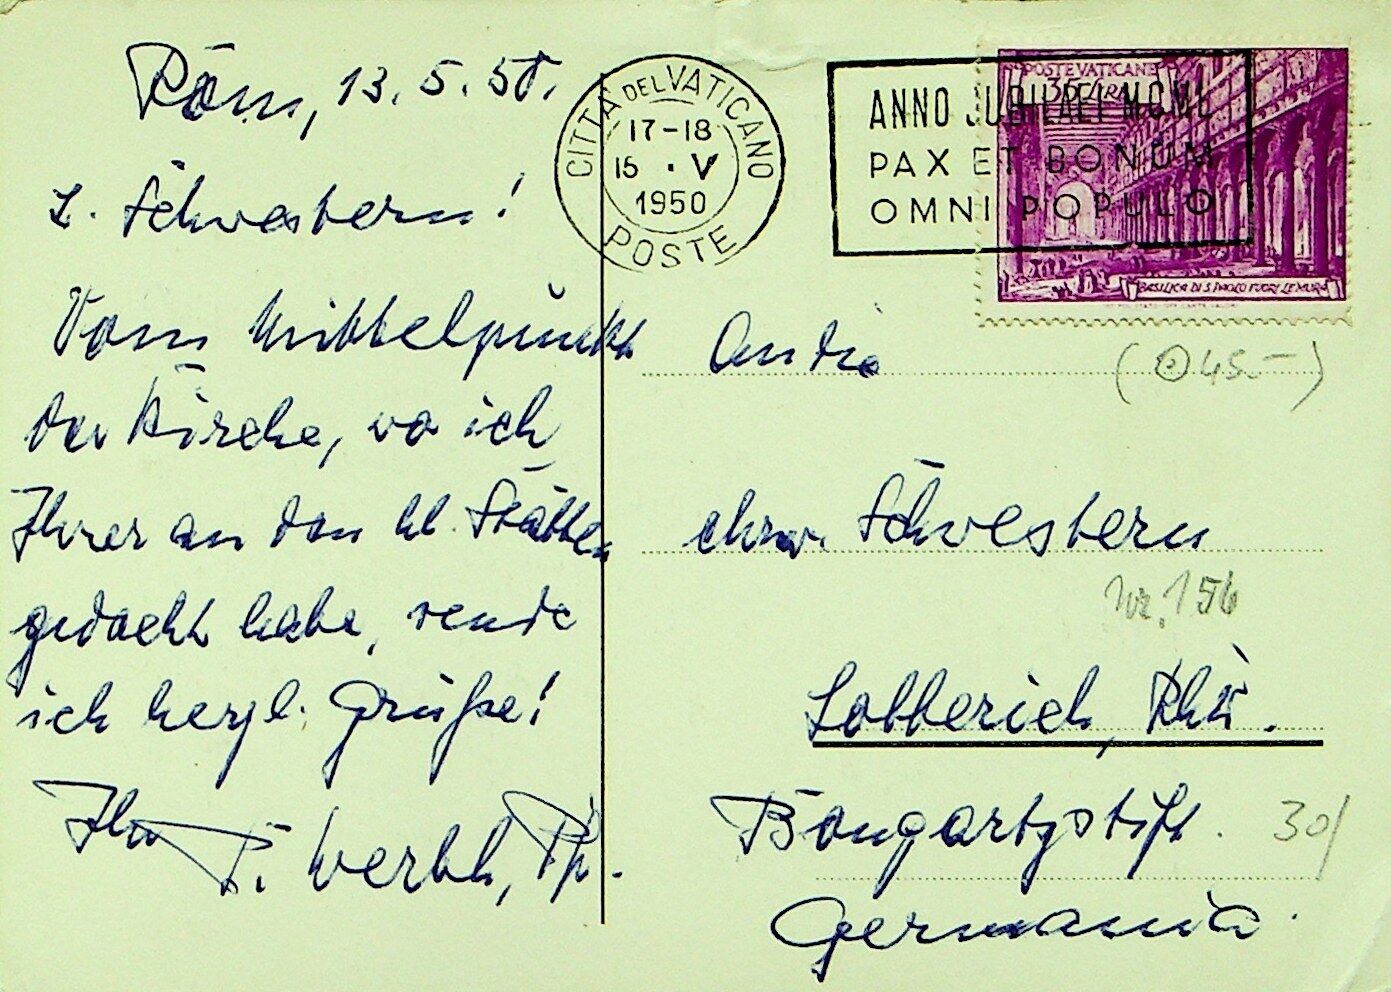 Rom, 13.5.50.
L. Schwestern!
Vom Mittelpunkt
der Kirche, wo ich
Ihrer an den hl. Stätten
gedacht habe, sende
ich herzl. Grüße!
Ihr
P. Werth,
CITTÀ DEL VATICANO
17-18
15 . V
1950
POSTE
ANNO JUBILAEI MCML
PAX ET BONUM
OMNI POPULO
POSTE VATICANE
35 LIRE
BASILICA DI S. PAOLO FUORI LE MURA
An die
(45.-)
ehrw. Schwestern
Nr. 156
Lobberich, Rhl.
Bongartzstift.
30/
Germania.